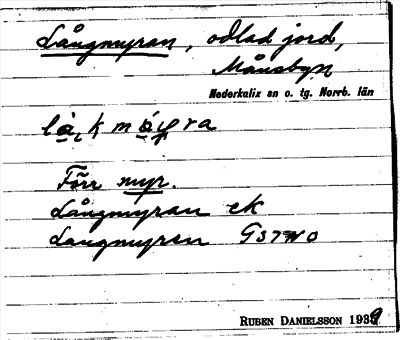 Långmyran, odlad jord,
Månsbyn
Nederkalix sn o. tg. Norrb. län
Förr myr.
Långmyran ek
Langmyren G37NO
RUBEN DANIELSSON 1939